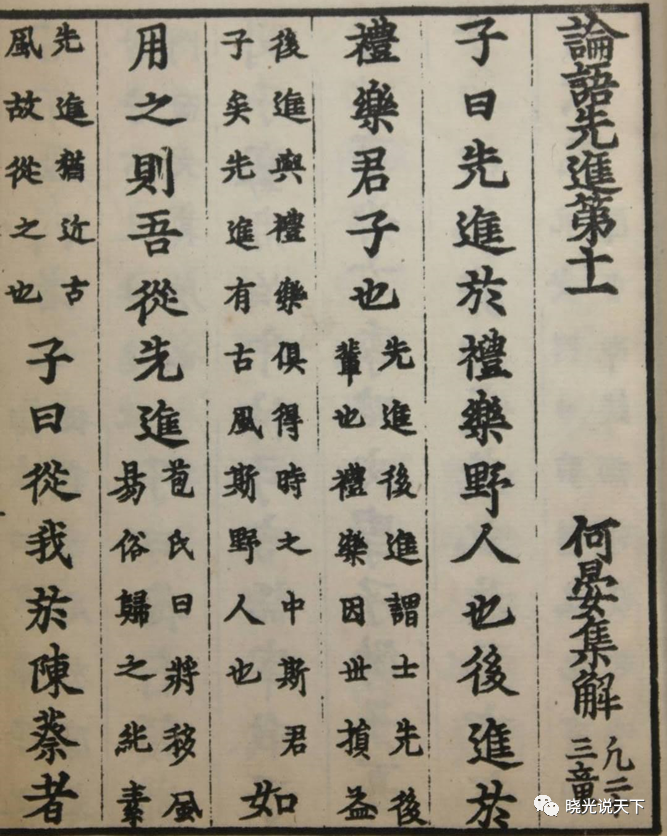 論語先進第十一 何晏集解 凢二三章
子曰先進於禮樂野人也後進於
禮樂君子也
先進後進謂士先後
輩也禮樂因世損益
後進與禮樂俱得時之中斯君
子矣先進有古風斯野人也
如
用之則吾從先進
苞氏曰將移風
易俗歸之純素
先進猶近古
風故從之也
子曰從我於陳蔡者
晓光说天下